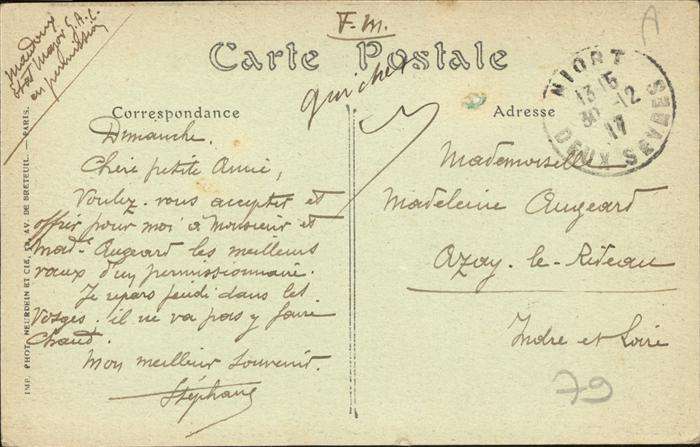 F.M.
Carte Postale
Correspondance
Adresse
NIORT
13 15
30 - 12
17
DEUX SEVRES
Etat Major G.A.C.
en permission
guichet
Dimanche.
Chère petite Amie,
Voulez-vous accepter et
offrir pour moi à Monsieur et
Mad^e Augeard les meilleurs
vœux d'un permissionnaire.
Je repars jeudi dans les
Vosges. il ne va pas y faire
chaud.
Mon meilleur souvenir.
Stéphane
Mademoiselle
Madeleine Augeard
Azay-le-Rideau
Indre et Loire
79
A
IMP. PHOT. NEURDEIN ET CIE, AV. DE BRETEUIL. — PARIS.